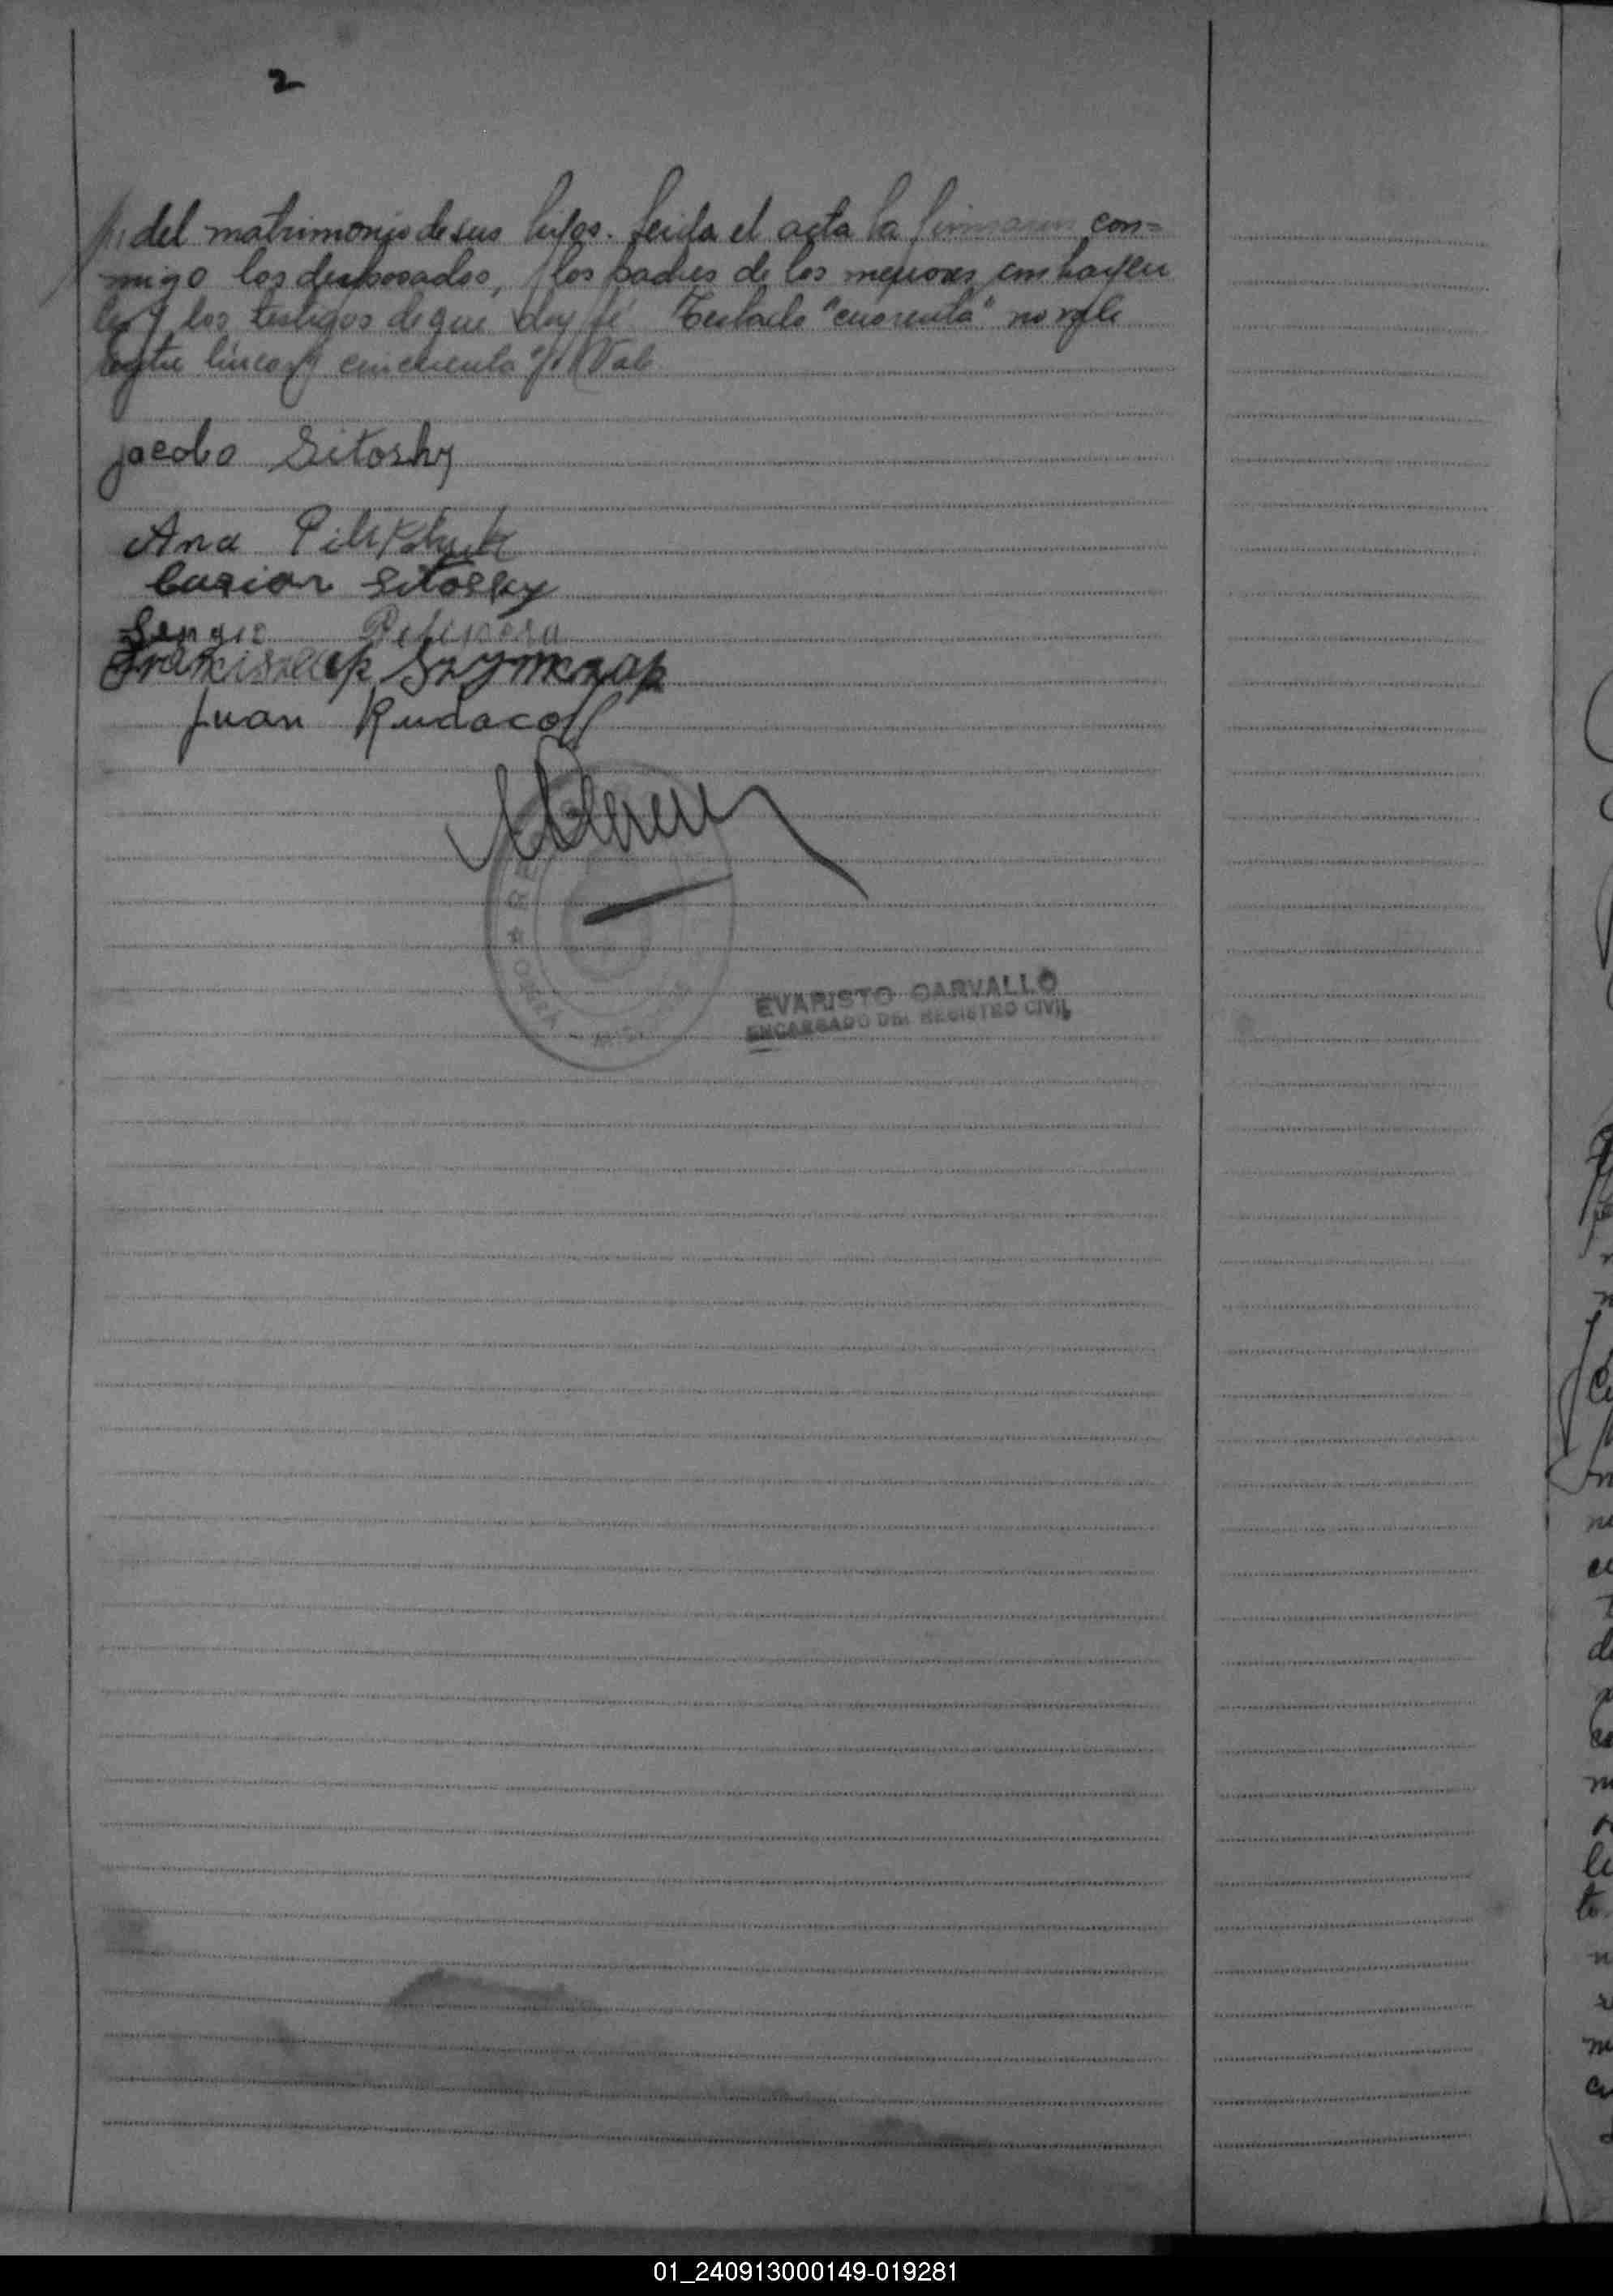 2
del matrimonio de sus hijos. Leida el acta la firmaron con=
migo los desposados, los padres de los menores
los testigos de que doy fé Testado "cuarenta" no vale
Entre lineas cincuenta Vale
jacobo Sitosky
Ana
Lucian Sitosky
Sergio
Franciszek Szymczak
Juan Rudacoff
EVARISTO CARVALLO
ENCARGADO DEL REGISTRO CIVIL
01_240913000149-019281